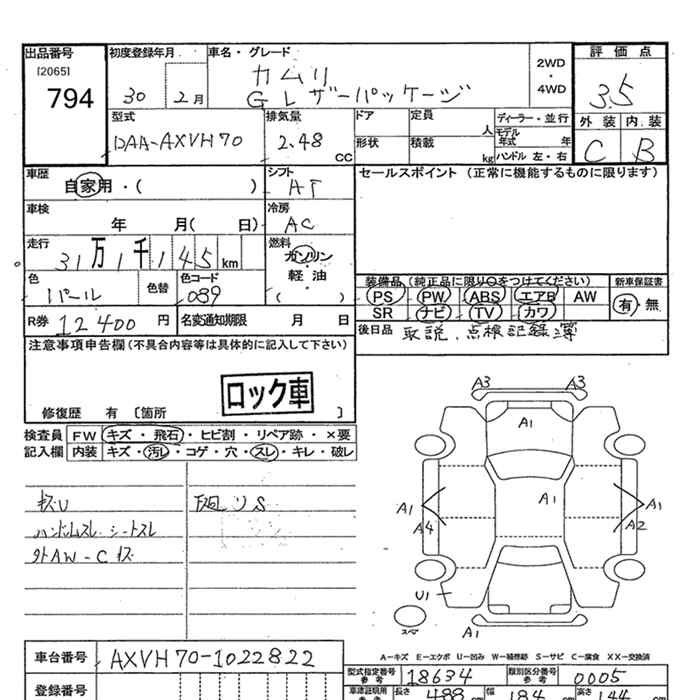 出品番号
[2065]
794
初度登録年月
30 2月
車名・グレード
カムリ
Gレザーパッケージ
2WD
・
4WD
評価点
3.5
外装 内装
C B
型式
DAA-AXVH70
排気量
2.48
CC
ドア
定員
人
形状
積載
kg
ディーラー・並行
モデル年式 年
ハンドル 左・右
車歴
自家用・( )
シフト
AT
車検
年 月( 日)
冷房
AC
走行
31万1千145km
燃料
ガソリン
軽油
( ・ )
色
パール
色替
色コード
089
R券 12400円
名変通知期限 月 日
セールスポイント(正常に機能するものに限ります)
装備品(純正品に限り○をつけてください)
PS PW ABS エアB AW
SR ナビ TV カワ
新車保証書
有・無
後日品 取説、点検記録簿
注意事項申告欄(不具合内容等は具体的に記入して下さい)
ロック車
修復歴 有〔箇所 〕
検査員 FW キズ・飛石・ヒビ割・リペア跡・×要
記入欄 内装 キズ・汚レ・コゲ・穴・スレ・キレ・破レ
キズU
ハンドルスレ シートスレ
外AW-Cキズ
下廻りS
A3 A3
A1
A1
A1 A4
A1 A2
U1
スペア
A1
A―キズ E―エクボ U―凹み W―補修跡 S―サビ C―腐食 XX―交換済
車台番号 AXVH70-1022822
登録番号
型式指定番号 参考 18634
類別区分番号 参考 0005
車検証現用 参考 長さ 488 cm 幅 184 cm 高さ 144 cm